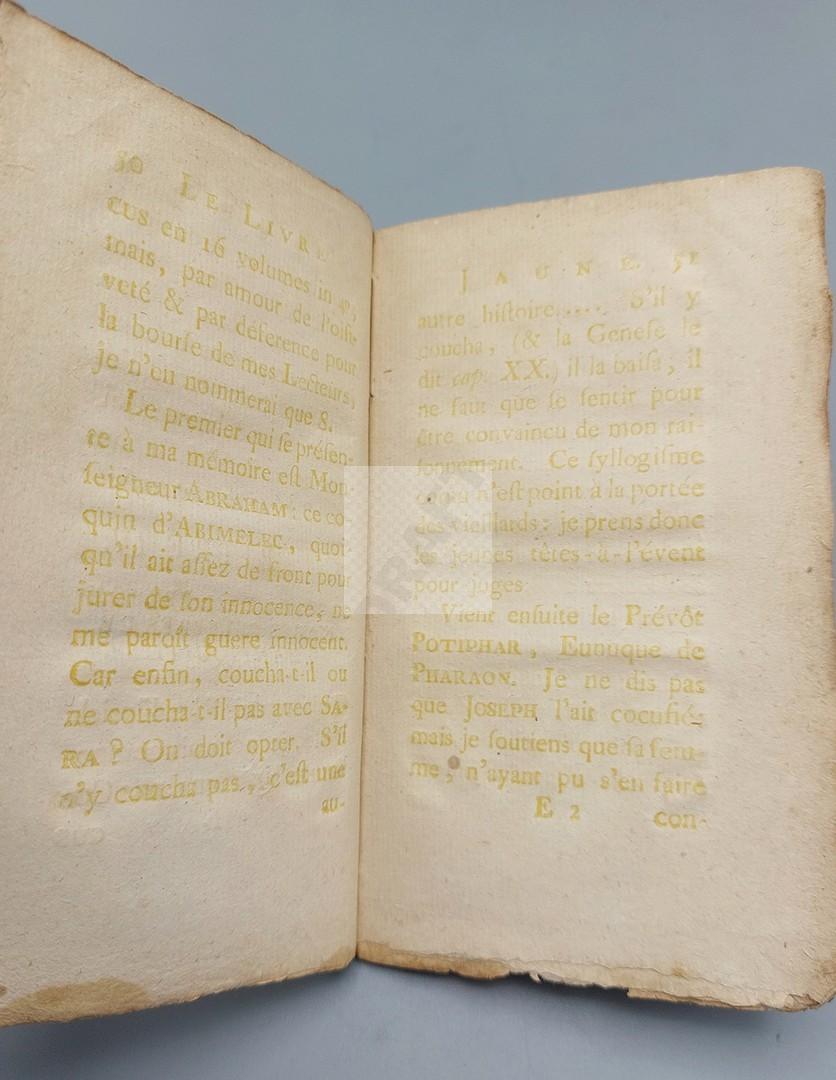 50 LE LIVRE
cus en 16 volumes in 4°,
mais, par amour de l'oisi-
veté & par déférence pour
la bourſe de mes Lecteurs,
je n'en nommerai que 8.
Le premier qui ſe préſen-
te à ma mémoire eſt Mon-
ſeigneur ABRAHAM : ce co-
quin d'ABIMELEC, quoi-
qu'il ait aſſez de front pour
jurer de ſon innocence, ne
me paroît guere innocent.
Car enfin, coucha-t-il ou
ne coucha-t-il pas avec SA-
RA ? On doit opter. S'il
n'y coucha pas, c'eſt une
au-
JAUNE. 51
autre hiſtoire.... S'il y
coucha, (& la Geneſe le
dit cap. XX.) il la baiſa, il
ne faut que ſe ſentir pour
être convaincu de mon rai-
ſonnement. Ce ſyllogiſme
n'eſt point à la portée
des vieillards : je prens donc
les jeunes têtes-à-l'évent
pour juges
Vient enſuite le Prévôt
POTIPHAR, Eunuque de
PHARAON. Je ne dis pas
que JOSEPH l'ait cocufié;
mais je ſoutiens que ſa fem-
me, n'ayant pu s'en faire
E 2 con-
DRAFT